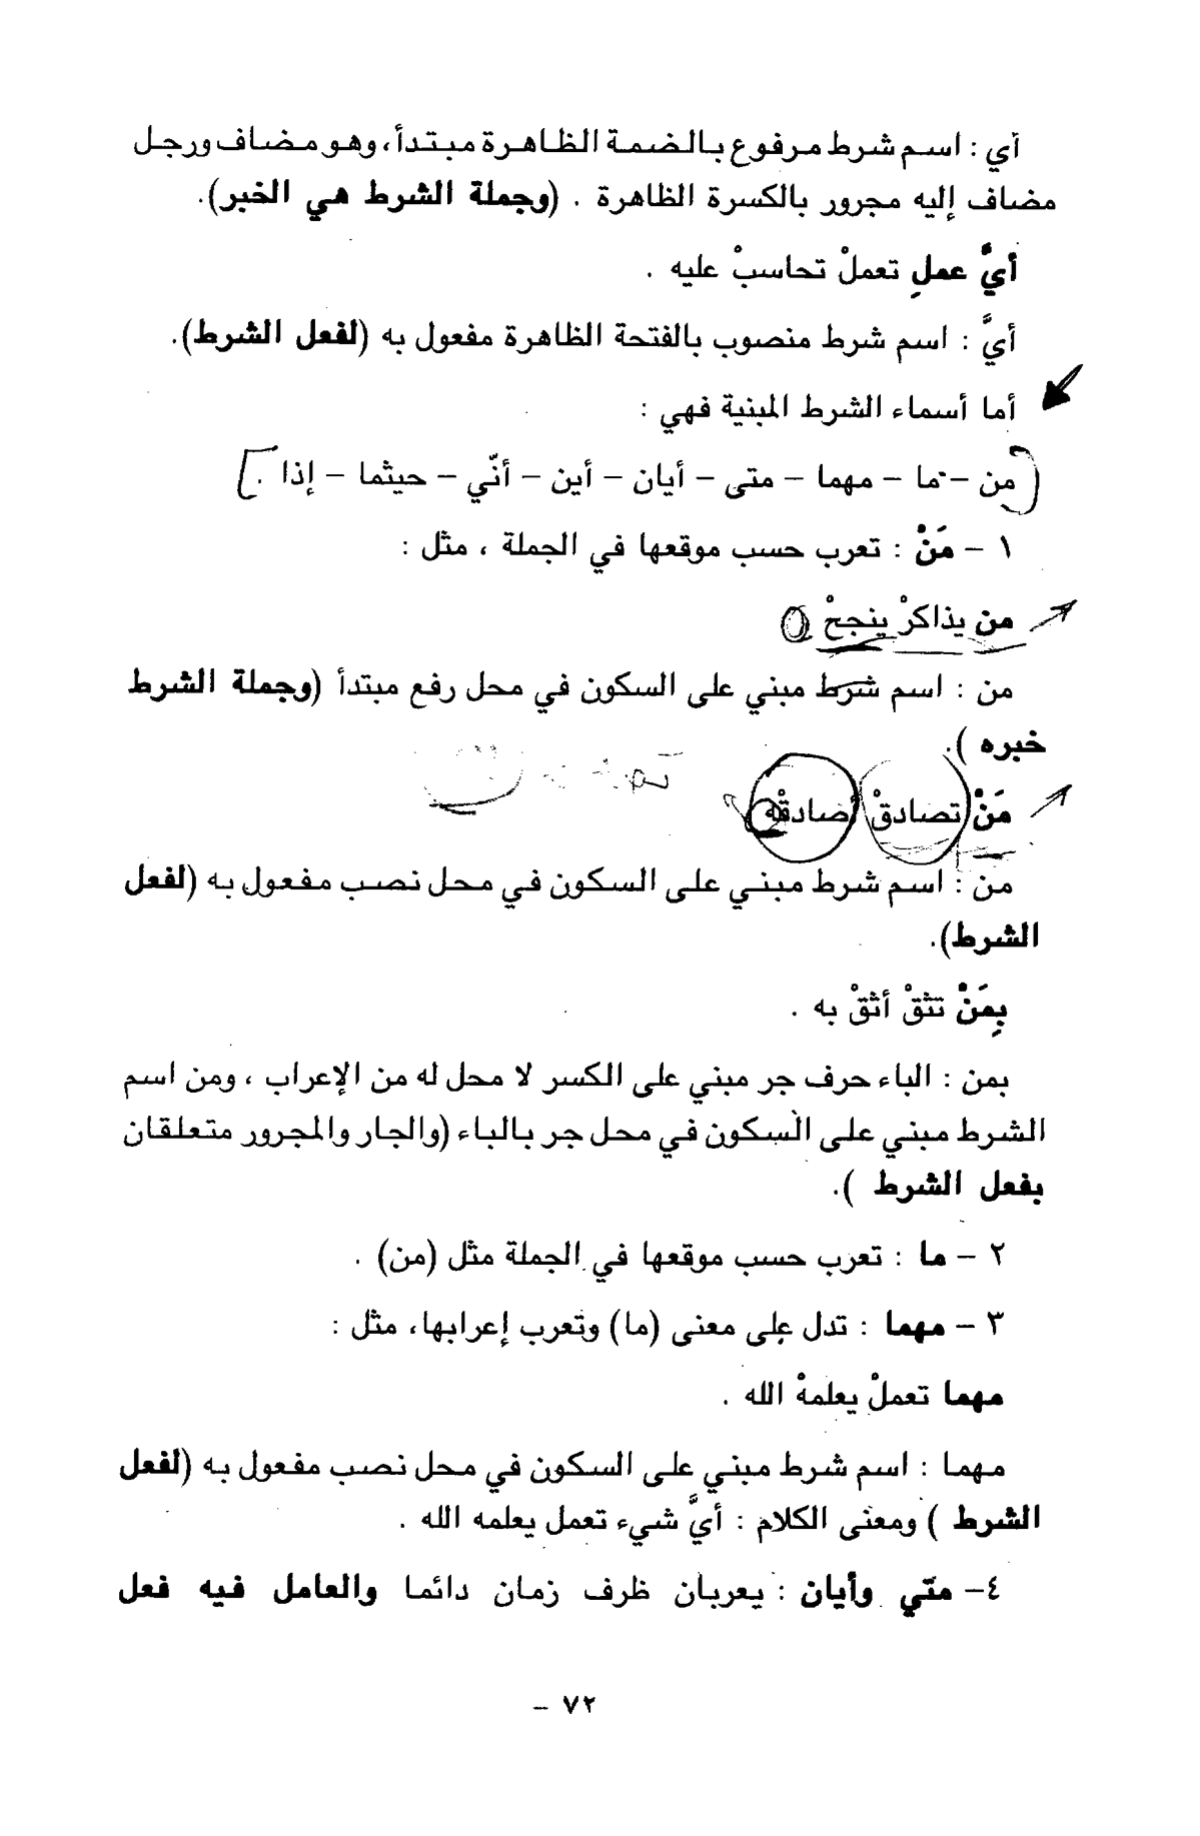 أي : اسم شرط مرفوع بالضمة الظاهرة مبتدأ، وهو مضاف ورجل
مضاف إليه مجرور بالكسرة الظاهرة . (وجملة الشرط هي الخبر).
أيَّ عملٍ تعملْ تحاسبْ عليه .
أيَّ : اسم شرط منصوب بالفتحة الظاهرة مفعول به (لفعل الشرط).
أما أسماء الشرط المبنية فهي :
[من – ما – مهما – متى – أيان – أين – أنّي – حيثما – إذا .]
١ – مَنْ : تعرب حسب موقعها في الجملة ، مثل :
من يذاكرْ ينجحْ
من : اسم شرط مبني على السكون في محل رفع مبتدأ (وجملة الشرط
خبره ).
مَنْ تصادقْ أصادقْه
من : اسم شرط مبني على السكون في محل نصب مفعول به (لفعل
الشرط).
بِمَنْ تثقْ أثقْ به .
بمن : الباء حرف جر مبني على الكسر لا محل له من الإعراب ، ومن اسم
الشرط مبني على السكون في محل جر بالباء (والجار والمجرور متعلقان
بفعل الشرط ).
٢ – ما : تعرب حسب موقعها في الجملة مثل (من) .
٣ – مهما : تدل على معنى (ما) وتعرب إعرابها، مثل :
مهما تعملْ يعلمهْ الله .
مهما : اسم شرط مبني على السكون في محل نصب مفعول به (لفعل
الشرط ) ومعنى الكلام : أيَّ شيء تعمل يعلمه الله .
٤– متّي وأيان : يعربان ظرف زمان دائما والعامل فيه فعل
٧٢ –